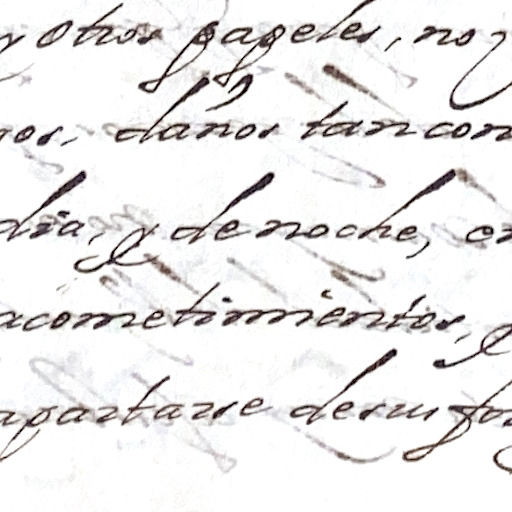 y otros papeles, no
ros. daños tan con
dia, y denoche, en
acometimientos, y
apartarse desus fo